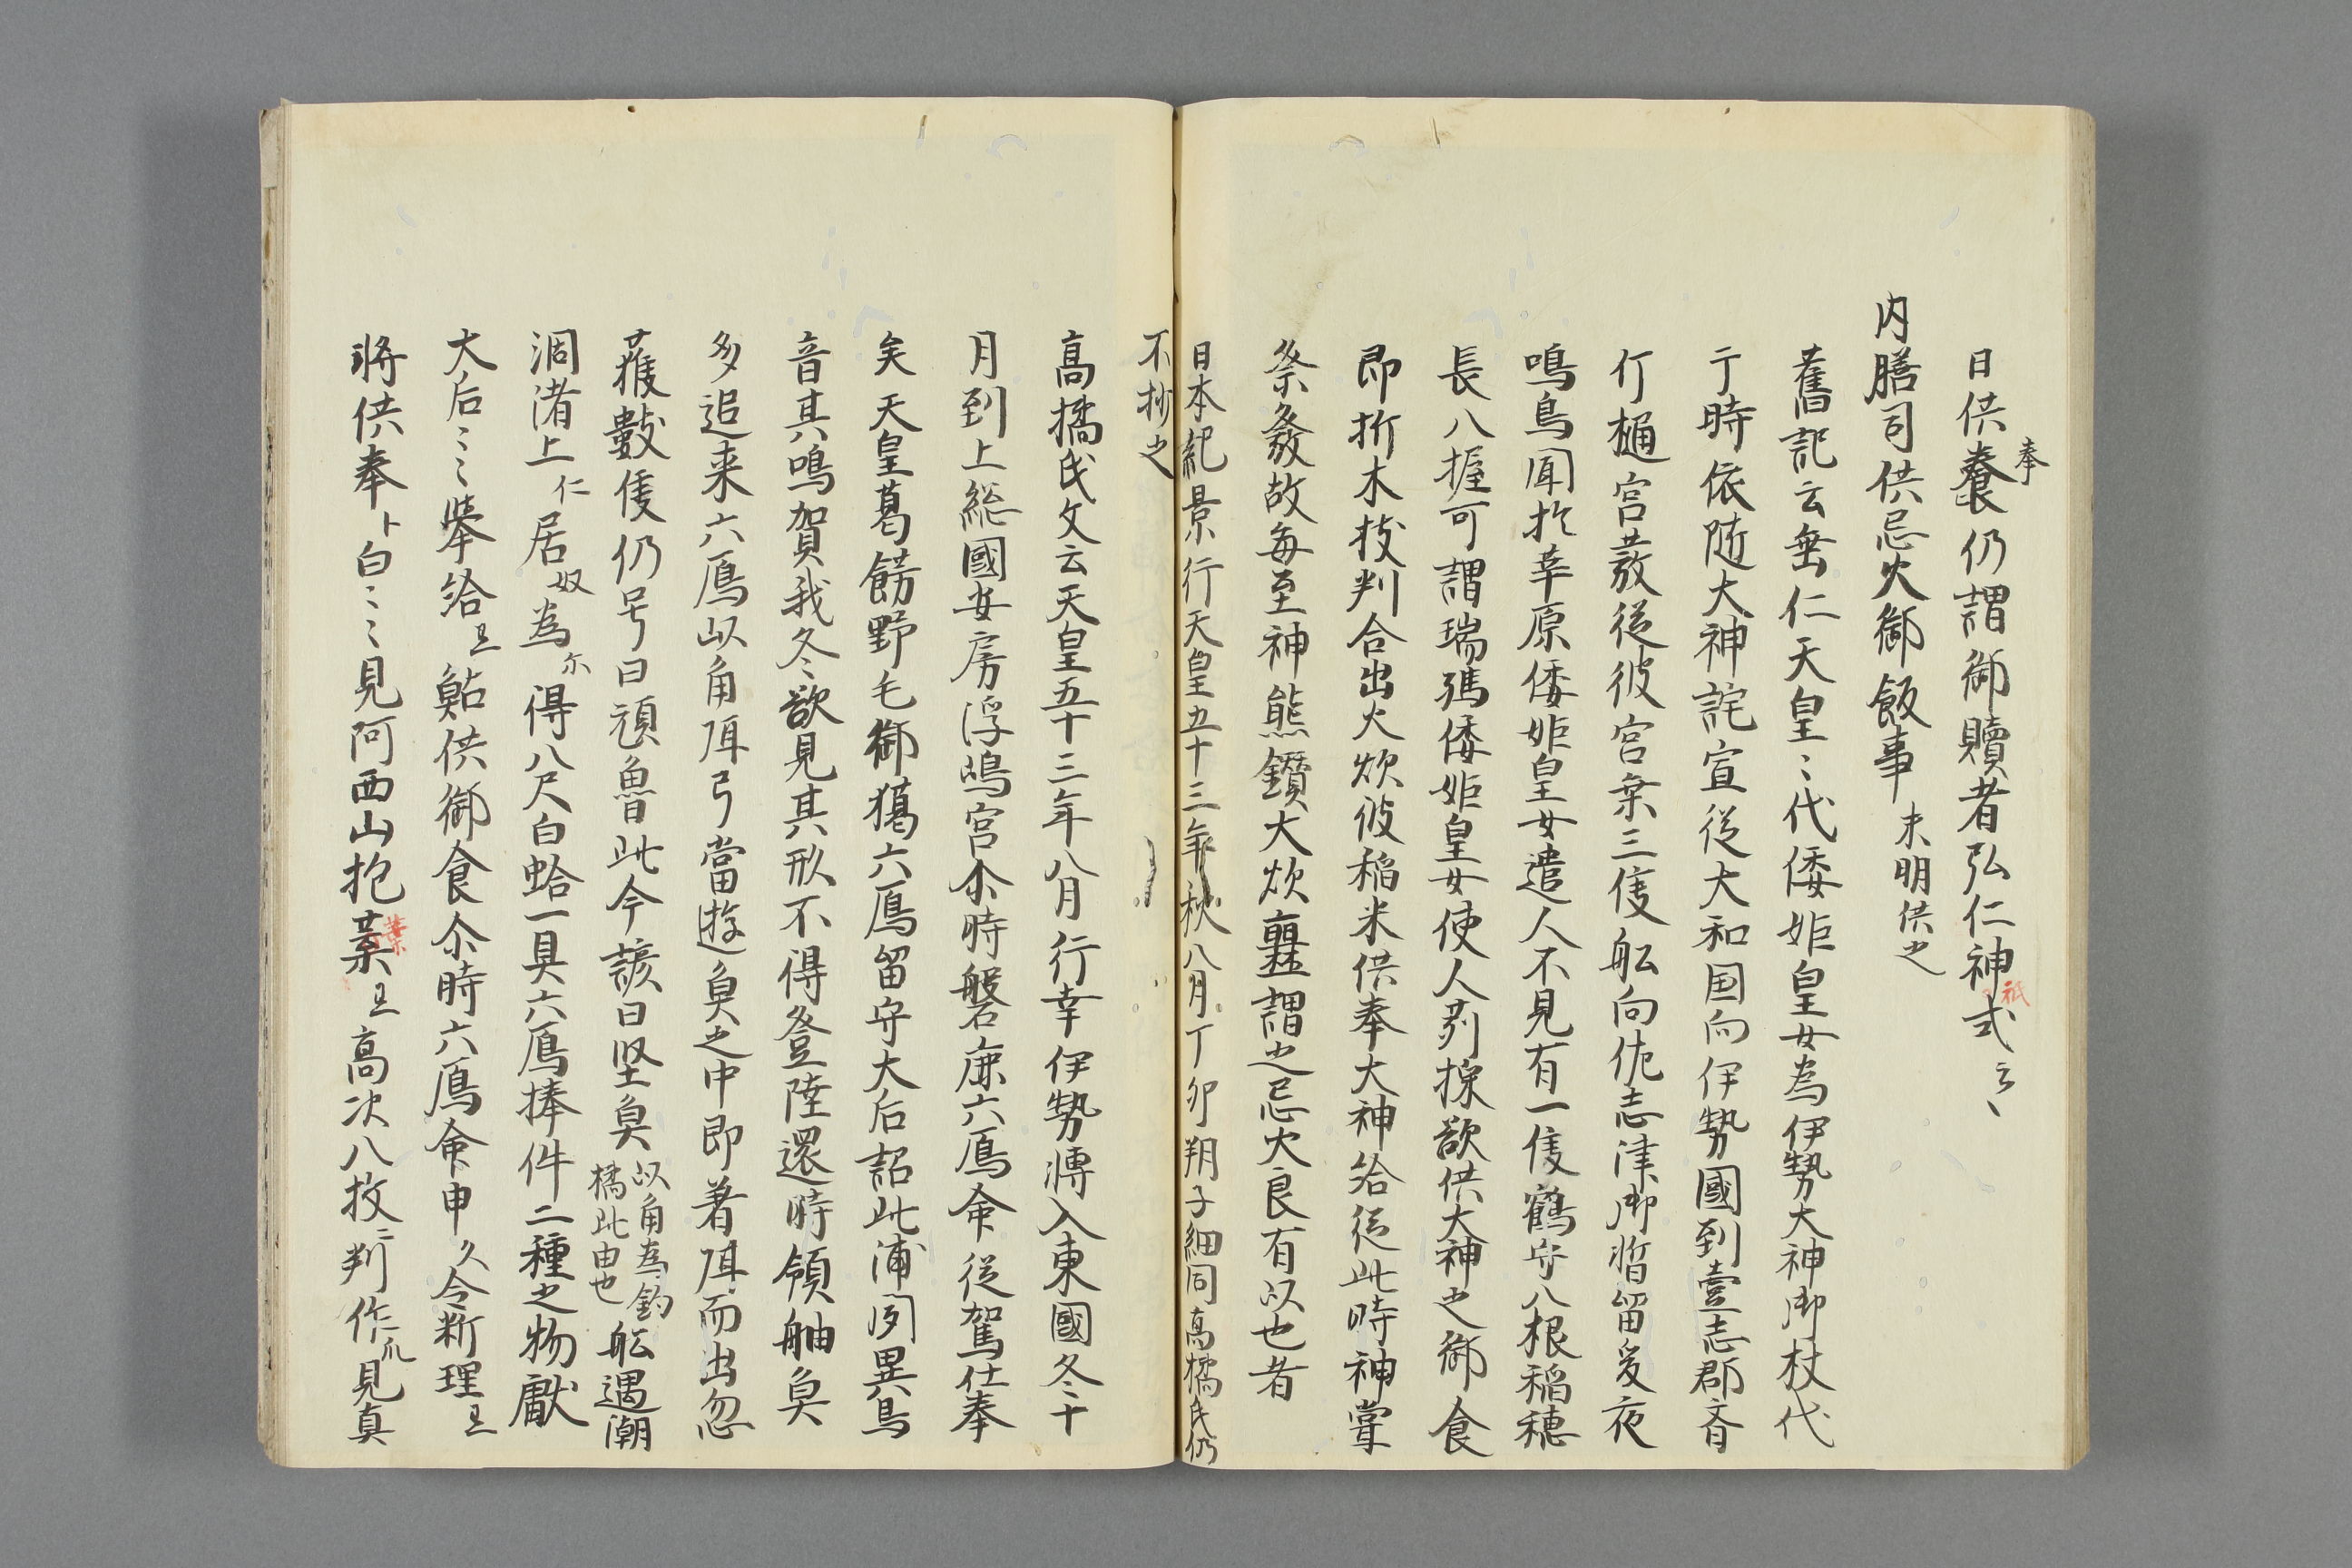 日供養仍謂御贖者弘仁神式云々
奉
祇
内膳司供忌火御飯事 未明供之
舊記云垂仁天皇々代倭姫皇女為伊勢大神御杖代
于時依随大神詫宣従大和国向伊勢國到壹志郡斎
行樋宮発従彼宮棄三隻舩向佐志津御暫留爰夜
鳴鳥聞於葦原倭姫皇女遣人不見有一隻鶴守八根稲穂
長八握可謂瑞獁倭姫皇女使人苅採欲供大神之御食
即折木枝判合出火炊彼稲米供奉大神給従此時神嘗
祭發故毎至神熊鑚大炊爨謂之忌火良有以也者
日本紀景行天皇五十三年秋八月丁卯朔子細同高橋氏仍
不抄之
高橋氏文云天皇五十三年八月行幸伊勢轉入東國冬十
月到上総國安房浮嶋宮尒時磐鹿六鴈命従駕仕奉
矣天皇葛餝野乇御獦六鴈留守大后詔此浦聞異鳥
音其鳴賀我久欲見其形不得登陸還時領舳魚
多追来六鴈以角弭弓當遊魚之中即著弭而出忽
獲數隻仍号曰頑魚此今諺曰堅魚 以角為釣
橘此由也 舩遇潮
涸渚上仁居奴為尒得八尺白蛤一具六鴈捧件二種之物獻
大后々々擧給且鮎供御食尒時六鴈命申久令斯理且
將供奉卜白々々見阿西山抱葉且高次八枚二判作爪見真
葉